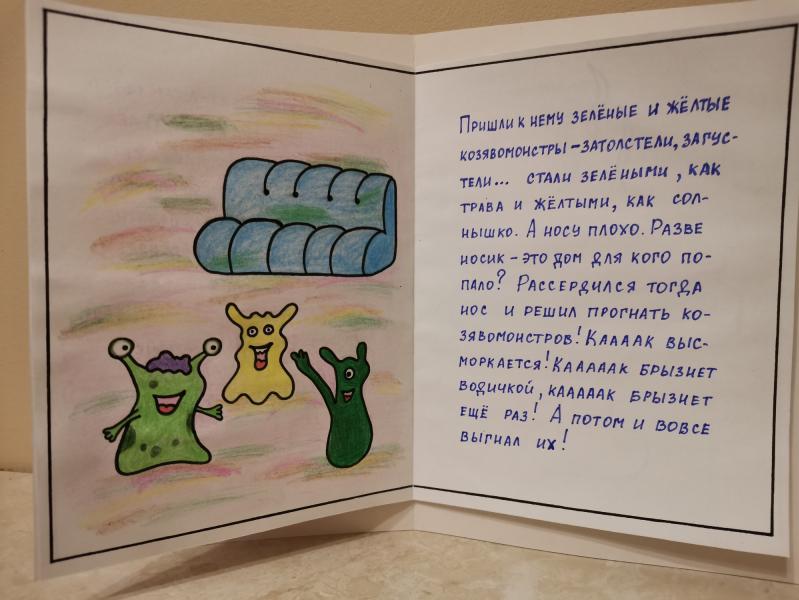 Пришли к нему зелёные и жёлтые
козявомонстры - затолстели, загус-
тели... стали зелёными, как
трава и жёлтыми, как сол-
нышко. А носу плохо. Разве
носик - это дом для кого по-
пало? Рассердился тогда
нос и решил прогнать ко-
зявомонстров! Каааак выс-
моркается! Каааааак брызнет
водичкой, кааааак брызнет
ещё раз! А потом и вовсе
выгнал их!